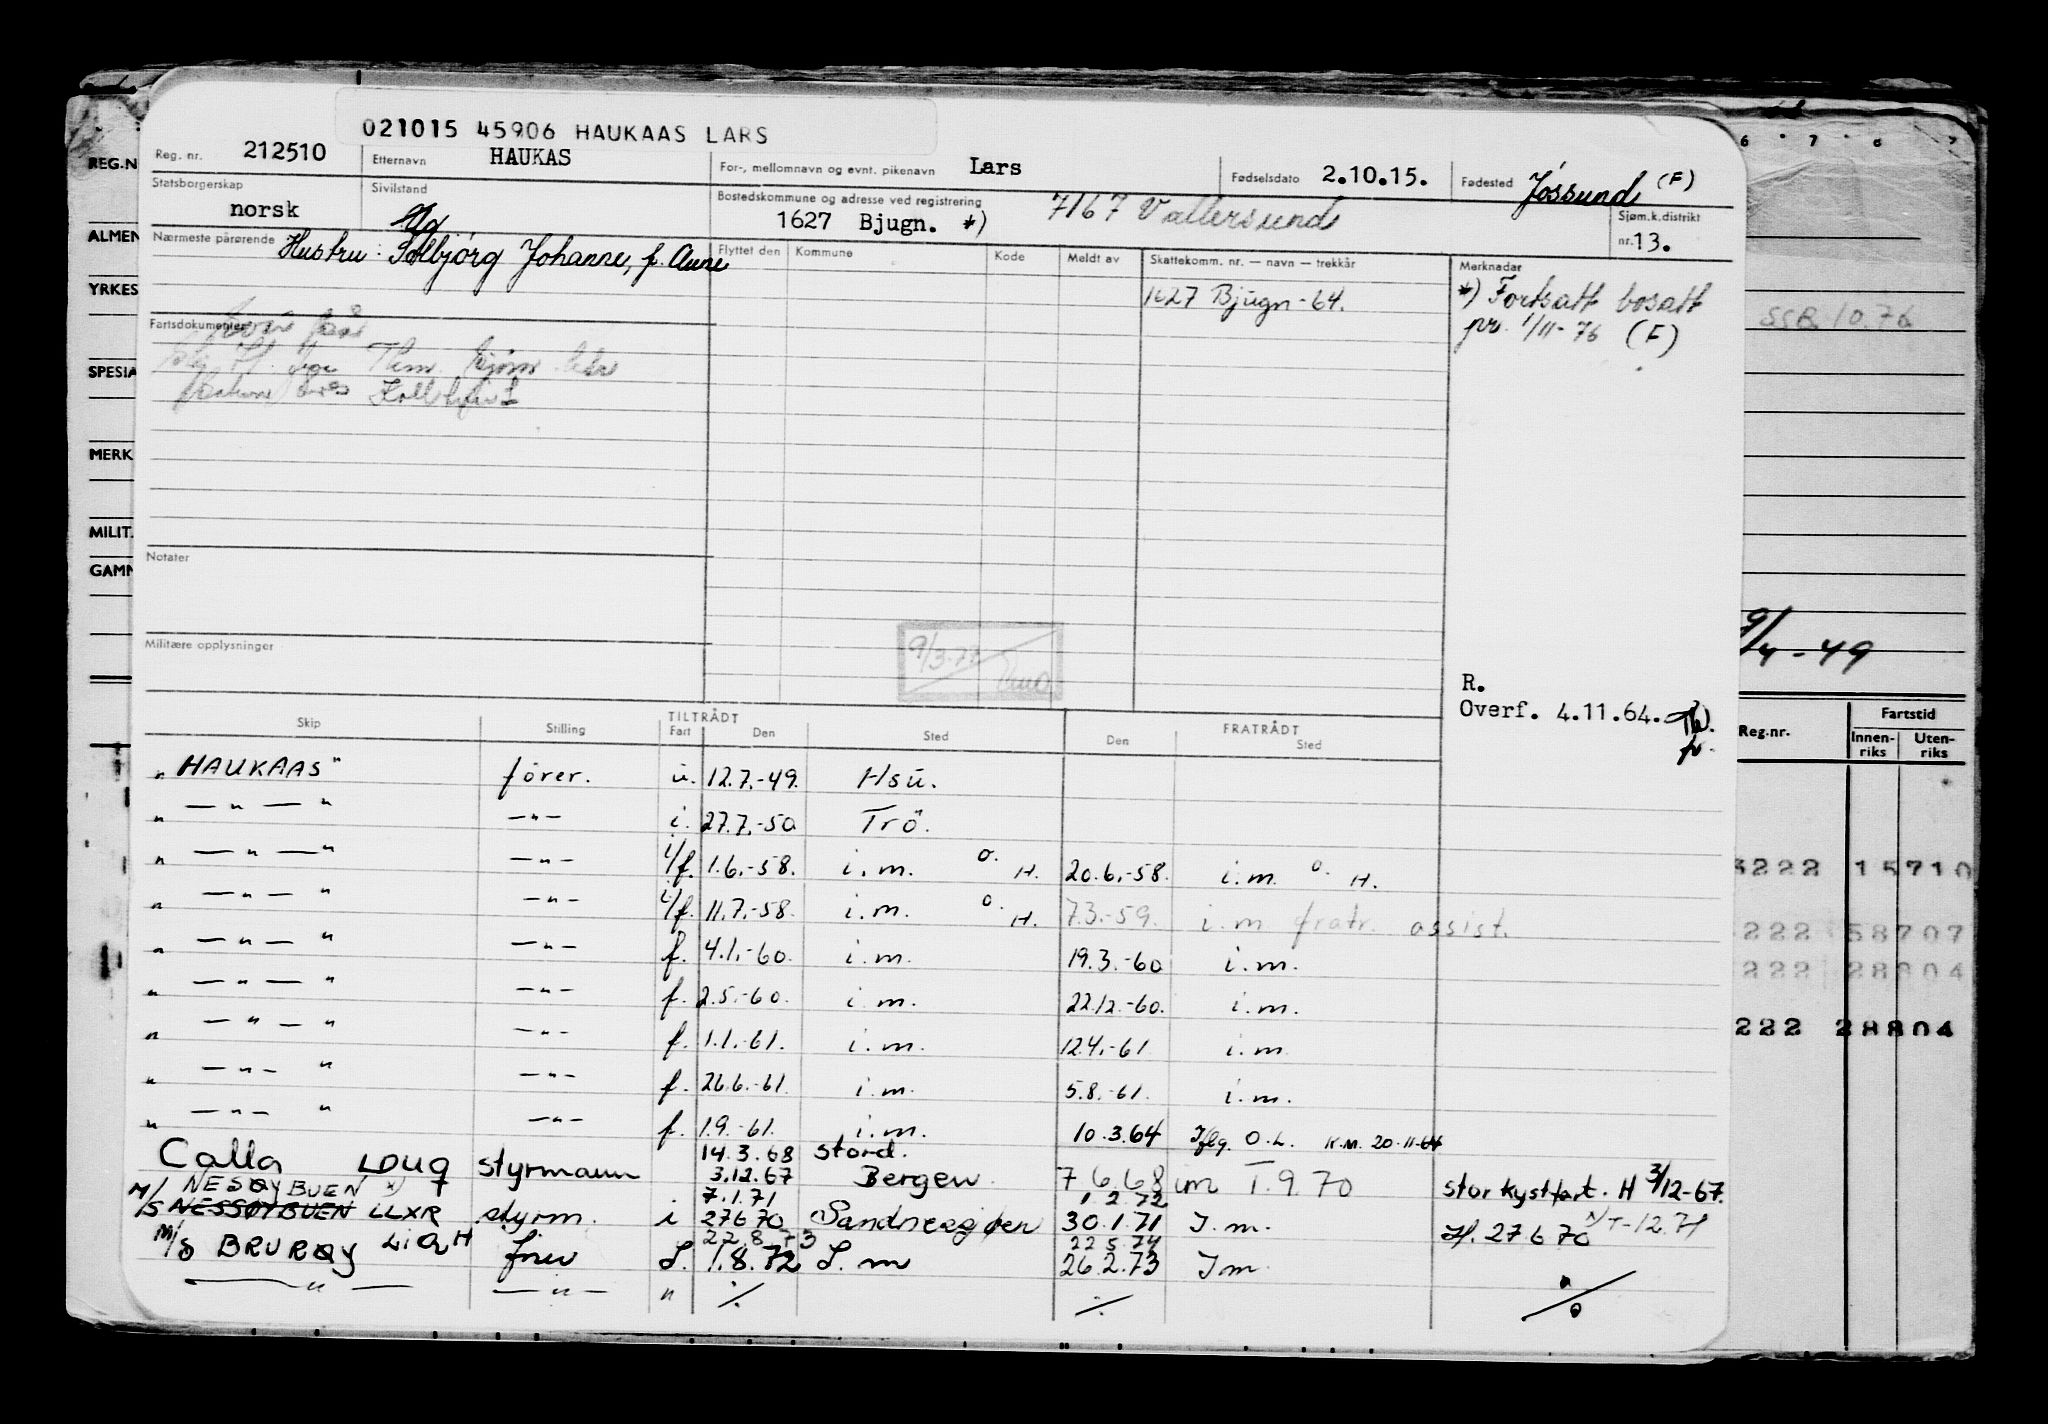 021015 45906 HAUKAAS LARS
Reg. nr. 212510 Etternavn HAUKAS For-, mellomnavn og evnt. pikenavn Lars Fødselsdato 2.10.15. Fødested Jøssund (F)
Statsborgerskap norsk Sivilstand Ug Bostedskommune og adresse ved registrering 1627 Bjugn. *) 7167 Vallersund Sjøm.k.distrikt nr. 13.
Nærmeste pårørende Hustru: Solbjørg Johanne, f. Aune Flyttet den Kommune Kode Meldt av Skattekomm. nr. — navn — trekkår Merknader
1627 Bjugn-64.
*) Fortsatt bosatt
pr. 1/11-76 (F)
Fartsdokumenter
Notater
9/3-77
Militære opplysninger
R.
Overf. 4.11.64.
Skip Stilling TILTRÅDT Fart Den Sted FRATRÅDT Den Sted
" HAUKAAS " fører. u. 12.7.-49. Hsu.
" — " — " — " — i. 27.7.-50 Trö.
" — " — " — " — i/f. 1.6.-58. i.m. o. H. 20.6.-58. i.m. o. H.
" — " — " — " — i/f. 11.7.-58. i.m. o. H. 7.3.-59. i.m fratr. assist.
" — " — " — " — f. 4.1.-60. i.m. 19.3.-60 i.m.
" — " — " — " — f. 2.5.-60. i.m. 22.12.-60. i.m.
" — " — " — " — f. 1.1.-61. i.m. 12.4.-61 i.m.
" — " — " — " — f. 26.6.-61. i.m. 5.8.-61. i.m.
" — " — " — " — f. 1.9.-61. i.m. 10.3.64 Iflg. O.L. K.M. 20-11-64
14.3.68 stord.
Calla LDUQ styrmann 3.12.67 Bergen 7 6.68 im T.9.70 stor kystfart. H 3/12-67.
M/ NESØYBUEN x) 7.1.71 1 2 72
S NESSØYBUEN LLXR styrm. i 27670 Sandnessjøen 30.1.71 I.m. H. 27 6 70 x) T-12.71
22.8.73 22 5 74
M/S BRURØY LIQH fører 1.8.72 26.2.73 I m
— " — — " — " ./. ./.
REG.N
ALMEN
YRKES
SPESIA
MERK
MILIT.
GAMM
6 7 8
SSB 10.76
9/4-49
Reg.nr. Fartstid
Innen-riks Uten-riks
3222 15710
222 58707
222 28804
222 28804